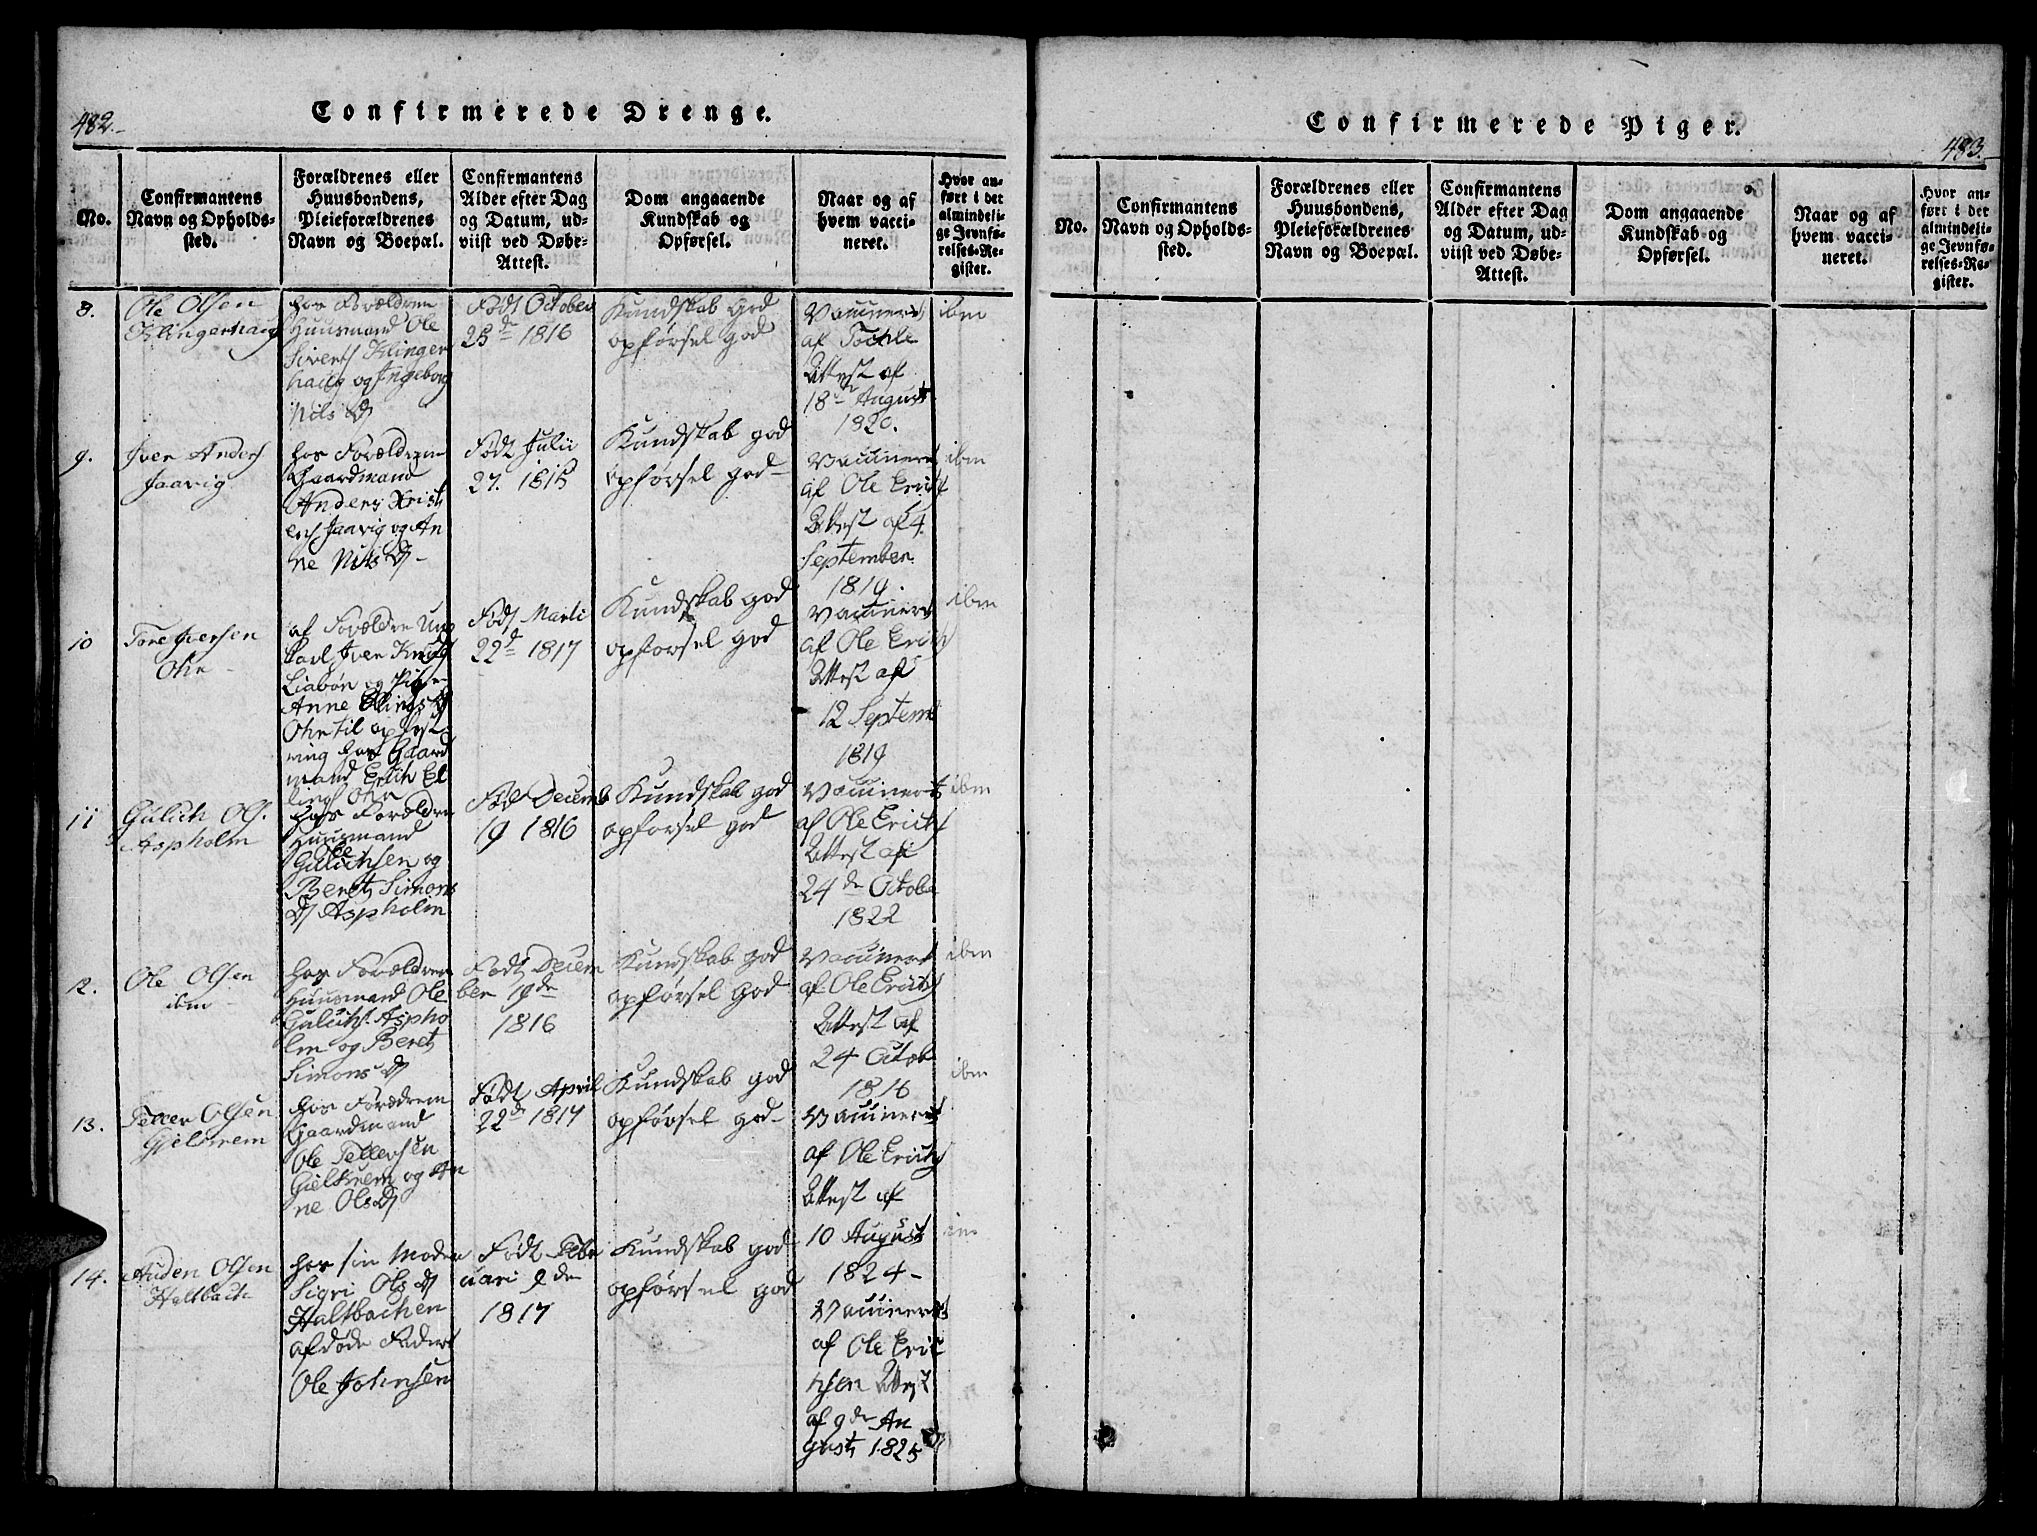 482.
Confirmerede Drenge.
No.
Confirmantens
Navn og Opholds-
sted.
Forældrenes eller
Huusbondens,
Pleieforældrenes
Navn og Boepæl.
Confirmantens
Alder efter Dag
og Datum, ud-
viist ved Døbe-
Attest.
Dom angaaende
Kundskab og
Opførsel.
Naar og af
hvem vacci-
neret.
Hvor an-
ført i det
almindeli-
ge Jevnfø-
relses-Re-
gister.
8.
Ole Olsen
Klingerhaug
hos Forældrene
Huusmand Ole
Siverts Klinger
haug og Ingeborg
Nils D
Født October
23de 1816
Kundskab god
opførsel god
Vaccinert
af
Attest af
18de August
1820.
ibm
9.
Iver Anders
Jaavig
hos Forældrene
Gaardmand
Anders Krist
ens Jaavig og An
ne Nils D
Født Julii
27. 1815
Kundskab god
opførsel god
Vaccinert
af Ole Erichs
Attest af 4
September
1819.
ibm
10
Tore Iversen
Ohr
af Forældre Ung
karl Iver Knuds
Liabøn og Pige
Anne Ellings D
Ohr til opfost
ring hos Gaard
mand Erich El
lings Ohr
Født Marti
22d 1817
Kundskab god
opførsel god
Vaccinert
af Ole Erichs
Attest af
12 Septemb
1819
ibm
11
Gulich Ols.
Aspholm
hos Forældre
Huusmand
Ole
Gulichsen og
Beret Simons
D Aspholm
Født Decemb
19 1816
Kundskab god
opførsel god
Vaccinert
af Ole Erichs
Attest af
24de Octobe
1822
ibm
12.
Ole Olsen
ibm
hos Forældrene
Huusmand Ole
Gulichs. Aspho
lm og Beret
Simons D
Født Decem
ber 19de
1816
Kundskab god
opførsel god
Vaccinert
af Ole Erichs
Attest af
24 Octob
1816
ibm
13.
Teller Olsen
Gjelsnem
hos Forædrene
Gaardmand
Ole Tellersen
og An
ne Ols D
Født April
22de 1817
Kundskab god
opførsel god
Vaccinert
af Ole Erichs
Attest af
10 August
1824
ibm
14.
Auden Olsen
Haltbach
hos sin Moder
Sigri Ols D
Haltbachen
afdøde Faders
Ole Johnsen
Født Febr
uari 9de
1817
Kundskab god
opførsel god
Vaccinert
af Ole Eric
hsen Attest
af 9de Au
gust 1825
Confirmerede Piger.
483.
No.
Confirmantens
Navn og Opholds-
sted.
Forældrenes eller
Huusbondens,
Pleieforældrenes
Navn og Boepæl.
Confirmantens
Alder efter Dag
og Datum, ud-
viist ved Døbe-
Attest.
Dom angaaende
Kundskab og
Opførsel.
Naar og af
hvem vacci-
neret.
Hvor an-
ført i det
almindeli-
ge Jevnfø-
relses-Re-
gister.